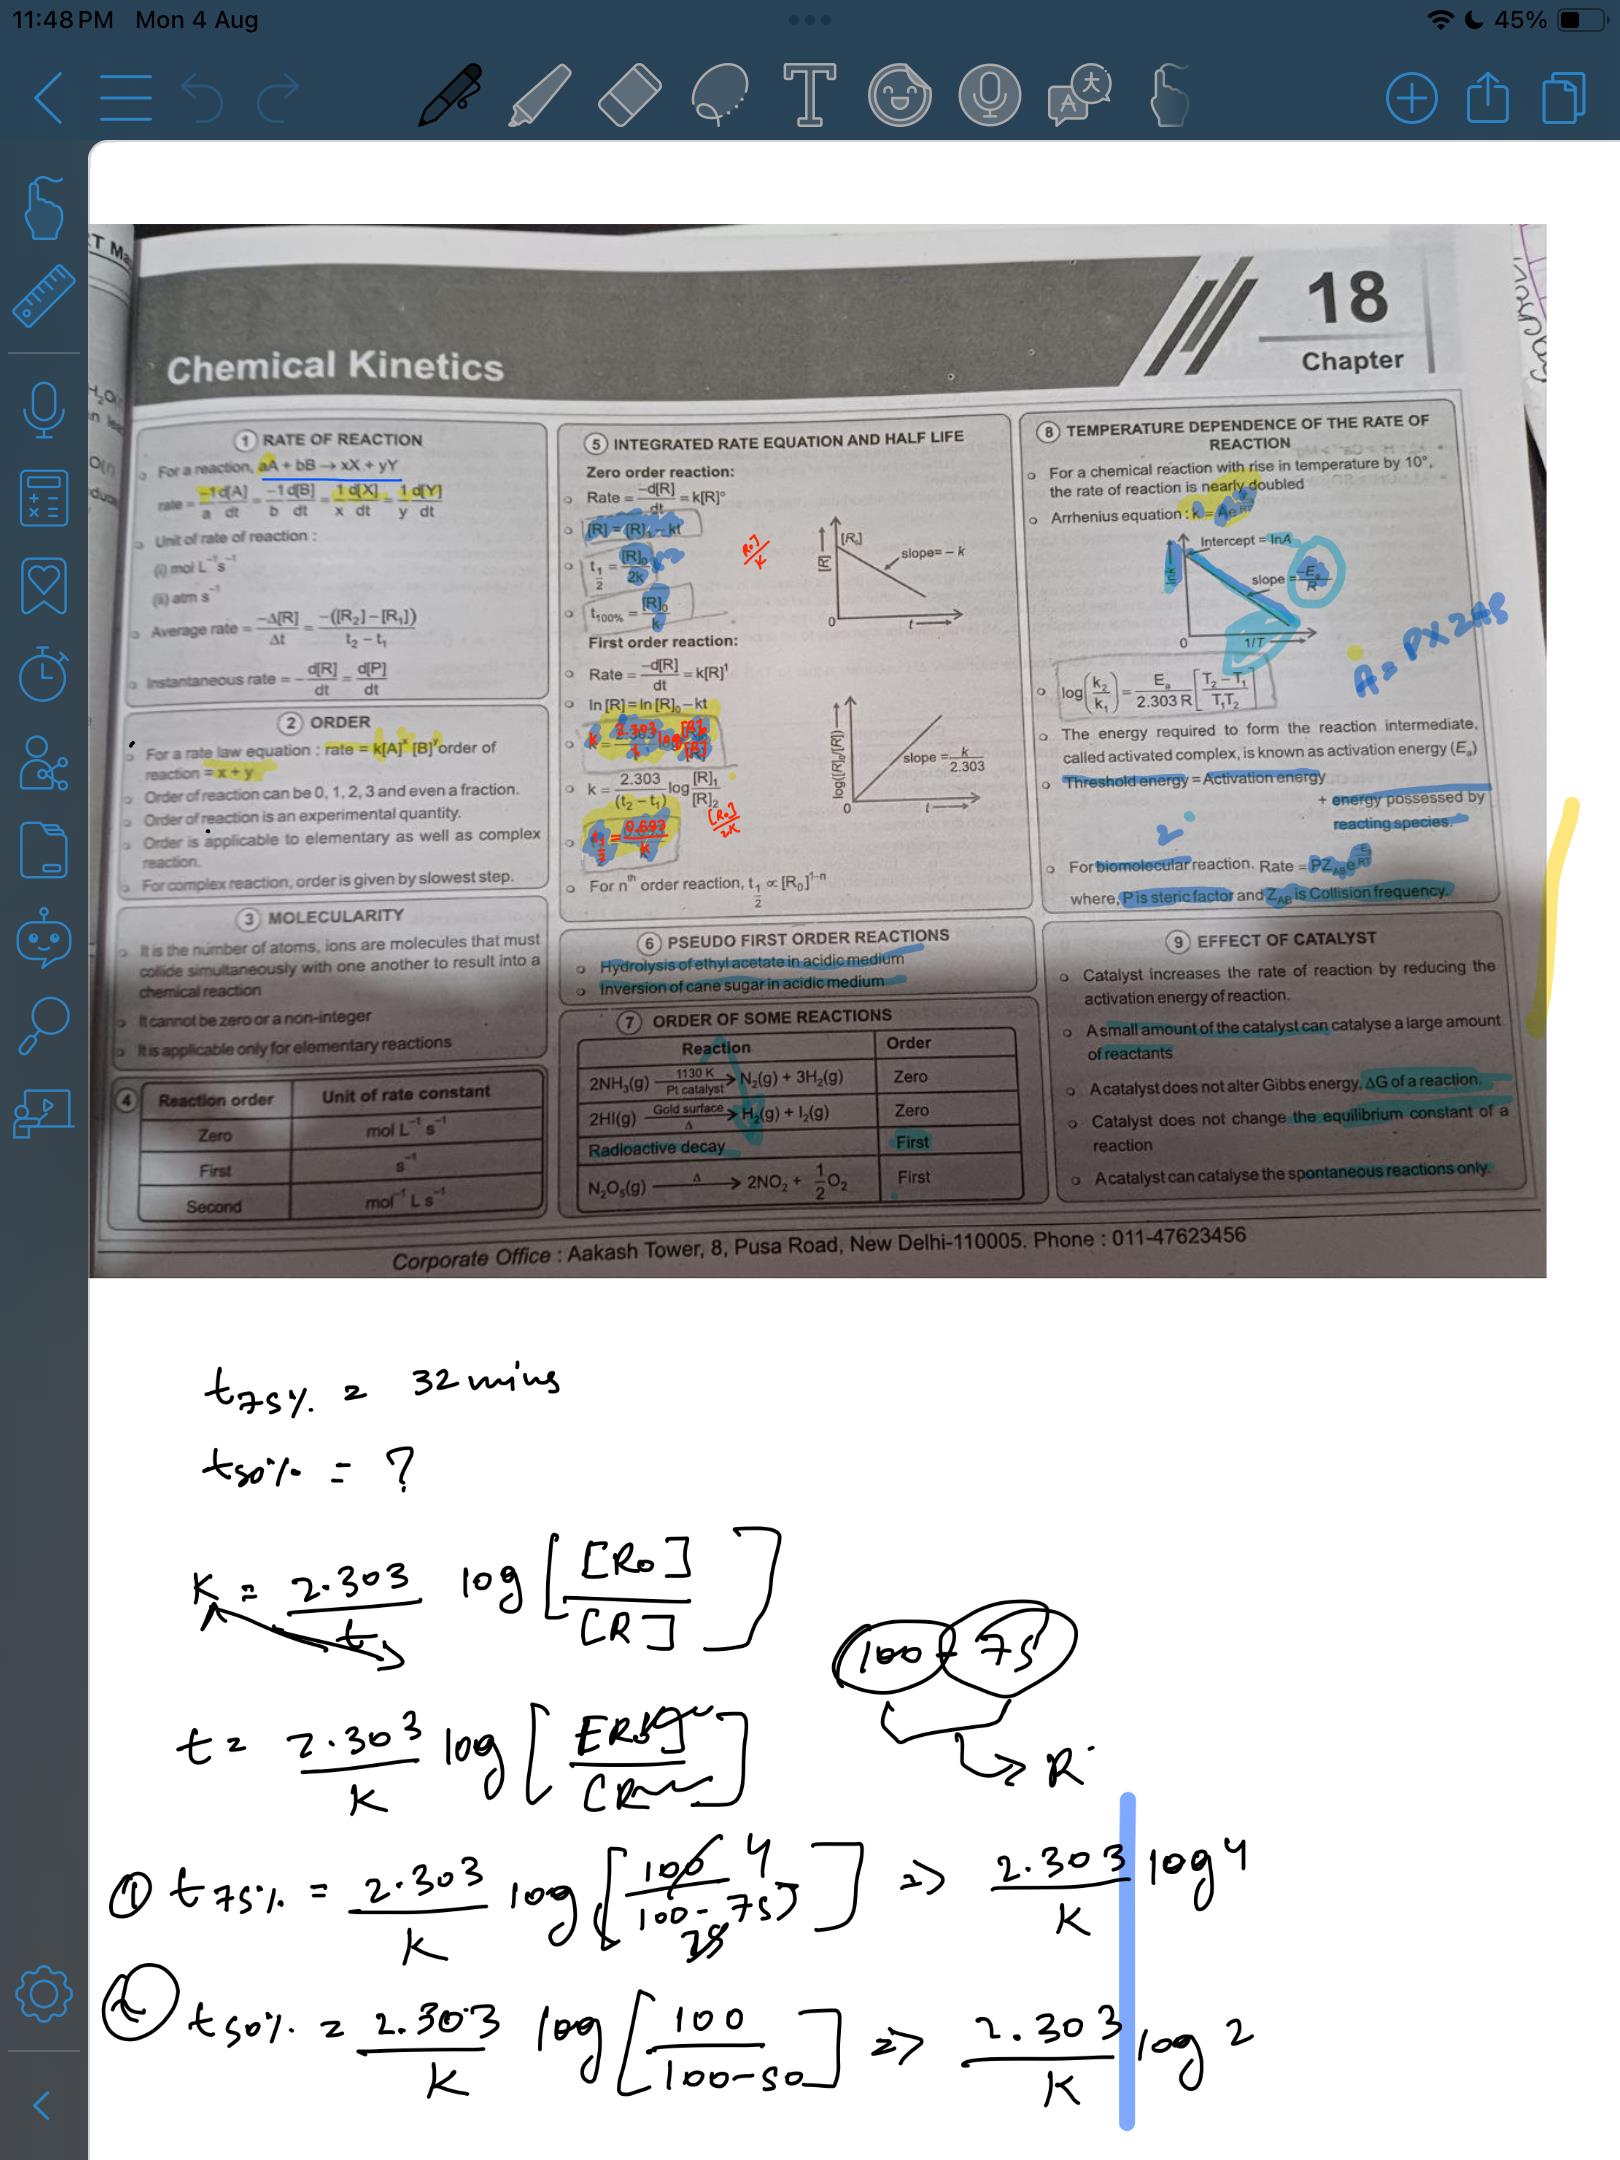 11:48 PM Mon 4 Aug
45%
18
Chapter
Chemical Kinetics
1 RATE OF REACTION
For a reaction, aA + bB → xX + yY
rate = -1 d[A]/a dt = -1 d[B]/b dt = 1 d[X]/x dt = 1 d[Y]/y dt
Unit of rate of reaction :
(i) mol L⁻¹ s⁻¹
(ii) atm s⁻¹
Average rate = -Δ[R]/Δt = -([R₂]–[R₁])/t₂ – t₁
Instantaneous rate = - d[R]/dt = d[P]/dt
2 ORDER
For a rate law equation : rate = k[A]ˣ [B]ʸ order of
reaction = x + y
Order of reaction can be 0, 1, 2, 3 and even a fraction.
Order of reaction is an experimental quantity.
Order is applicable to elementary as well as complex
reaction.
For complex reaction, order is given by slowest step.
3 MOLECULARITY
It is the number of atoms, ions are molecules that must
collide simultaneously with one another to result into a
chemical reaction
It cannot be zero or a non-integer
It is applicable only for elementary reactions
4 Reaction order Unit of rate constant
Zero mol L⁻¹ s⁻¹
First s⁻¹
Second mol⁻¹ L s⁻¹
5 INTEGRATED RATE EQUATION AND HALF LIFE
Zero order reaction:
Rate = -d[R]/dt = k[R]⁰
[R] = [R]₀ – kt
t½ = [R]₀/2k
[R₀]/K
t100% = [R]₀/k
[R] [R₀] slope= – k
0 t
First order reaction:
Rate = -d[R]/dt = k[R]¹
ln [R] = ln [R]₀ – kt
k = 2.303/t log [R]₀/[R]
k = 2.303/(t₂ – t₁) log [R]₁/[R]₂
t½ = 0.693/K
[R₀]/2K
log([R]₀/[R]) slope = k/2.303
0 t
For nth order reaction, t½ ∝ [R₀]¹⁻ⁿ
6 PSEUDO FIRST ORDER REACTIONS
Hydrolysis of ethyl acetate in acidic medium
Inversion of cane sugar in acidic medium
7 ORDER OF SOME REACTIONS
Reaction Order
2NH₃(g) 1130 K Pt catalyst → N₂(g) + 3H₂(g) Zero
2HI(g) Gold surface Δ → H₂(g) + I₂(g) Zero
Radioactive decay First
N₂O₅(g) Δ → 2NO₂ + 1/2 O₂ First
8 TEMPERATURE DEPENDENCE OF THE RATE OF
REACTION
For a chemical reaction with rise in temperature by 10°,
the rate of reaction is nearly doubled
Arrhenius equation : k = Ae
Intercept = lnA
lnk
slope = -Eₐ/R
0 1/T
A = PXZAB
log(k₂/k₁) = Eₐ/2.303 R [T₂ – T₁/T₁T₂]
The energy required to form the reaction intermediate,
called activated complex, is known as activation energy (Eₐ)
Threshold energy = Activation energy
+ energy possessed by
reacting species.
2
For biomolecular reaction. Rate = PZABe
where, P is steric factor and ZAB is Collision frequency.
9 EFFECT OF CATALYST
Catalyst increases the rate of reaction by reducing the
activation energy of reaction.
A small amount of the catalyst can catalyse a large amount
of reactants
A catalyst does not alter Gibbs energy, ΔG of a reaction.
Catalyst does not change the equilibrium constant of a
reaction
A catalyst can catalyse the spontaneous reactions only.
Corporate Office : Aakash Tower, 8, Pusa Road, New Delhi-110005. Phone : 011-47623456
t75% = 32 mins
t50% = ?
K = 2.303/t log [[R0]/[R]]
100 - 75
t = 2.303/K log [[R0]/[R]]
R
① t75% = 2.303/K log [100/100-75] 4 25 => 2.303/K log 4
② t50% = 2.303/K log [100/100-50] => 2.303/K log 2